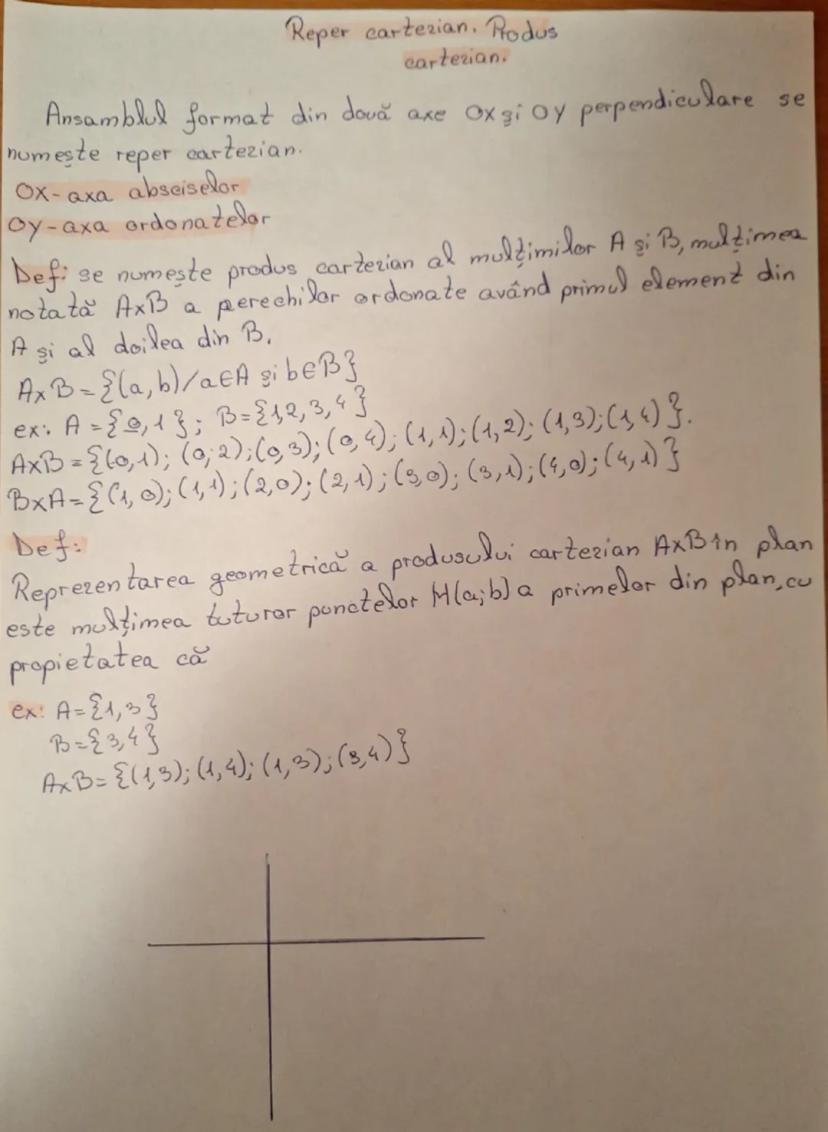 Reper cartezian. Produs
cartezian.
Ansamblul format din două axe OX și OY perpendiculare se
numește reper cartezian.
OX-axa absciselor
OY-axa ordonatelor
Def: se numește produs cartezian al mulțimilor A și B, mulțimea
notată AxB a perechilor ordonate având primul element din
A și al doilea din B.
AxB={(a,b)/a∈A și b∈B}
ex: A={0,1}; B={1,2,3,4}
AxB={(0,1); (0,2);(0,3); (0,4); (1,1);(1,2); (1,3);(1,4)}.
BxA={(1,0);(1,1);(2,0);(2,1);(3,0);(3,1);(4,0);(4,1)}
Def:
Reprezentarea geometrică a produsului cartezian AxB în plan
este mulțimea tuturor punctelor M(a;b) a primelor din plan, cu
propietatea că
ex: A={1,3}
B={3,4}
AxB={(1,3);(1,4);(1,3);(3,4)}